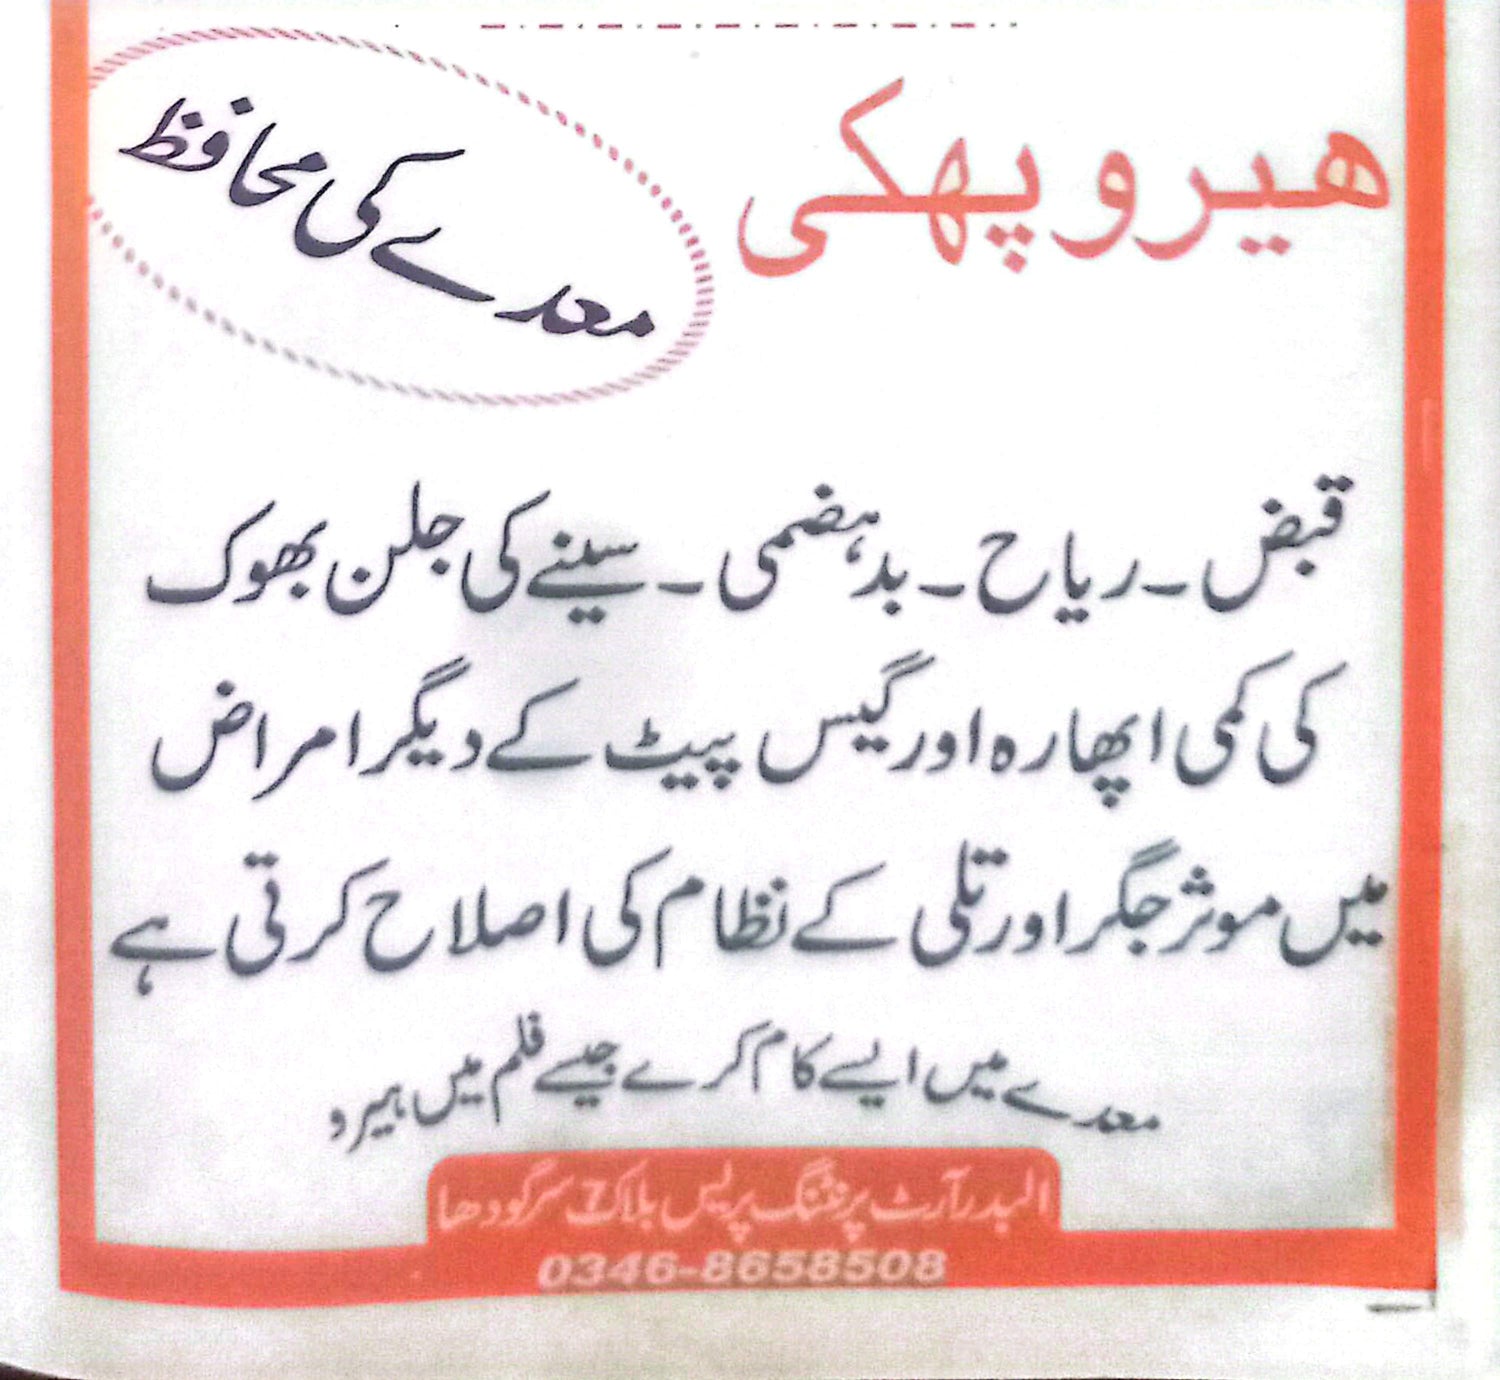 ھیرو پھکی
معدے کی محافظ
قبض ۔ ریاح ۔ بدہضمی ۔ سینے کی جلن بھوک
کی کمی اپھارہ اور گیس پیٹ کے دیگر امراض
میں موثر جگر اور تلی کے نظام کی اصلاح کرتی ہے
معدے میں ایسے کام کرے جیسے فلم میں ہیرو
البدر آرٹ پرنٹنگ پریس بلاک 7 سرگودھا
0346-8658508